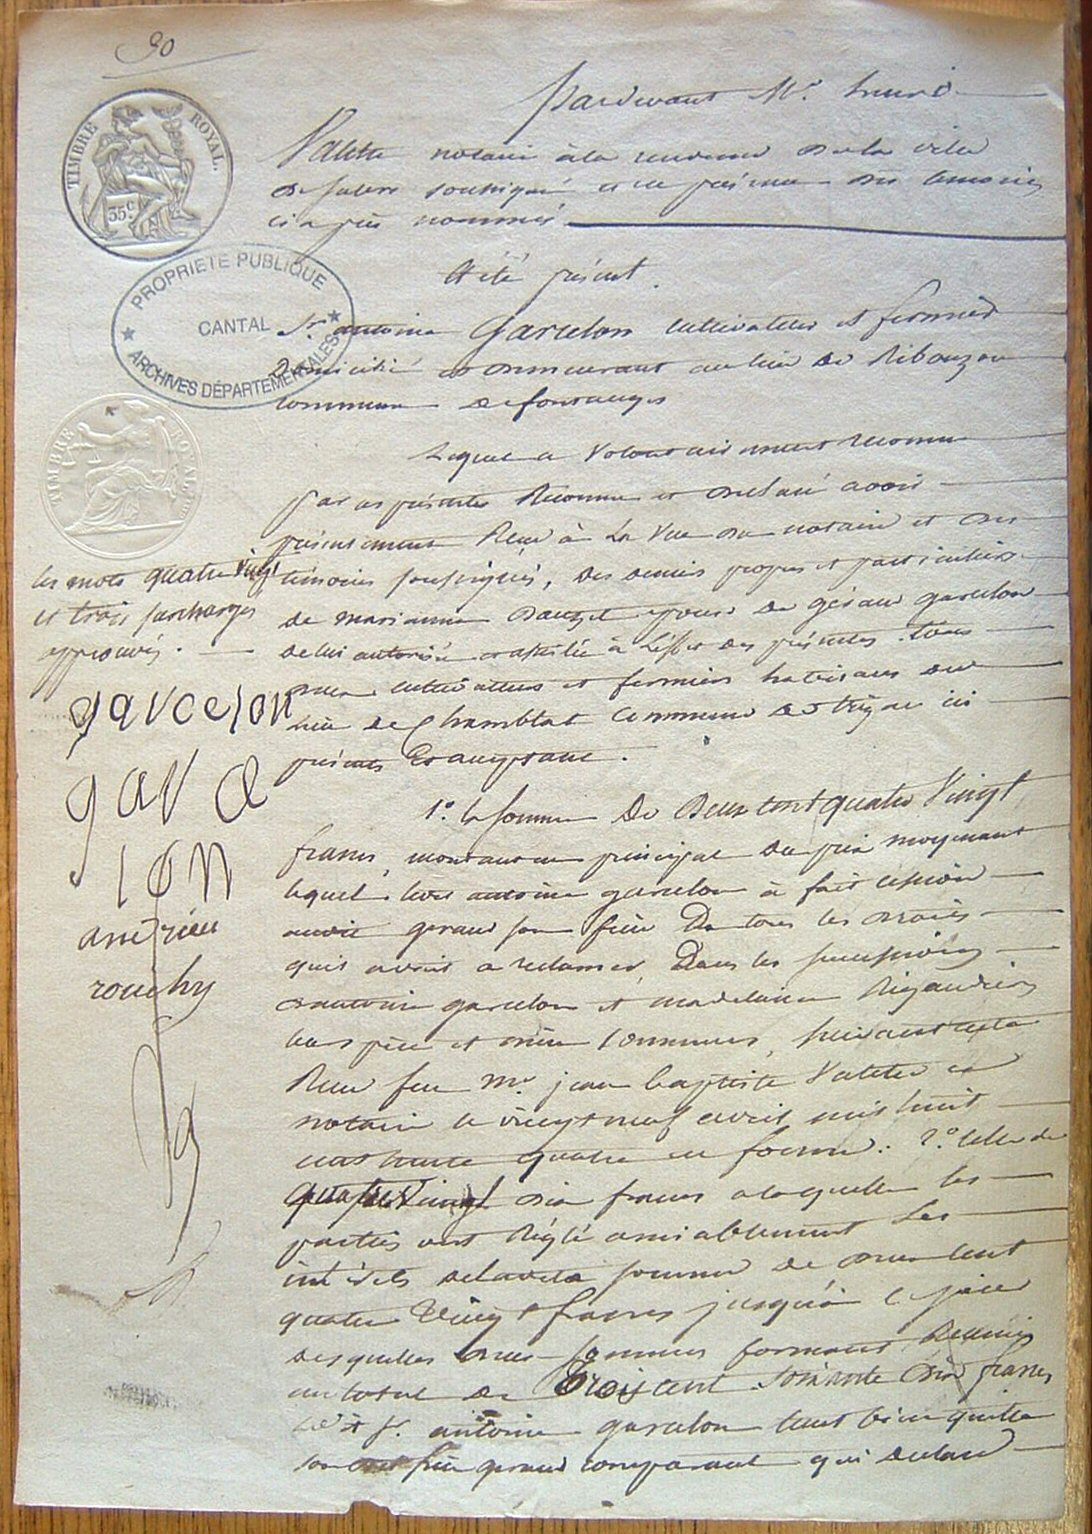 90
TIMBRE ROYAL.
35 c.
PROPRIETE PUBLIQUE
CANTAL
ARCHIVES DÉPARTEMENTALES
TIMBRE ROYAL
Pardevant Mᵉ
Valette notaire à la residence de la ville
de Salers soussigné et en présence des temoins
ci après nommés
A été présent
Sr antoine Garcelon cultivateur et fermier
Domicilié et demeurant au lieu de Ribouzou
commune de fontanges
Lequel a volontairement reconnu
par ces présentes Reconnu et declaré avoir
présentement Reçu à La Vue du notaire et des
témoins soussignés, des deniers propres et particuliers
de marianne epouse de géraud garcelon
de lui autorisée et assistée à L'effet des présentes tous
deux cultivateurs et fermiers habitans du
lieu de Chamblat commune de ici
présents Et acceptant.
1° la somme De Deux cent quatre Vingt
francs, montant en principal du prix moyennant
lequel antoine garcelon à fait cession
geraud son frère De tous les droits
qu'il avait a reclamer, Dans les successions
d'antoine garcelon et madelaine Rigaudière
leurs père et mère communs, suivant acte
Reçu feu mᵉ jean baptiste Valette
notaire le vingt neuf avril mil huit
cent trente quatre en forme. 2° celle de
quatre Vingt dix francs a laquelle les
parties ont Réglé amiablement Les
intérêts de ladite somme de deux cent
quatre Vingt francs jusqu'à ce jour
desquelles deux sommes formant Réunies
un total de Trois cent soixante dix francs
led. s. antoine garcelon tient bien quitte
son dit frère geraud comparant qui declare
les mots quatre Vingt
et trois surcharges
approuvés.
garcelon
garce
lon
andrieu
rouchy